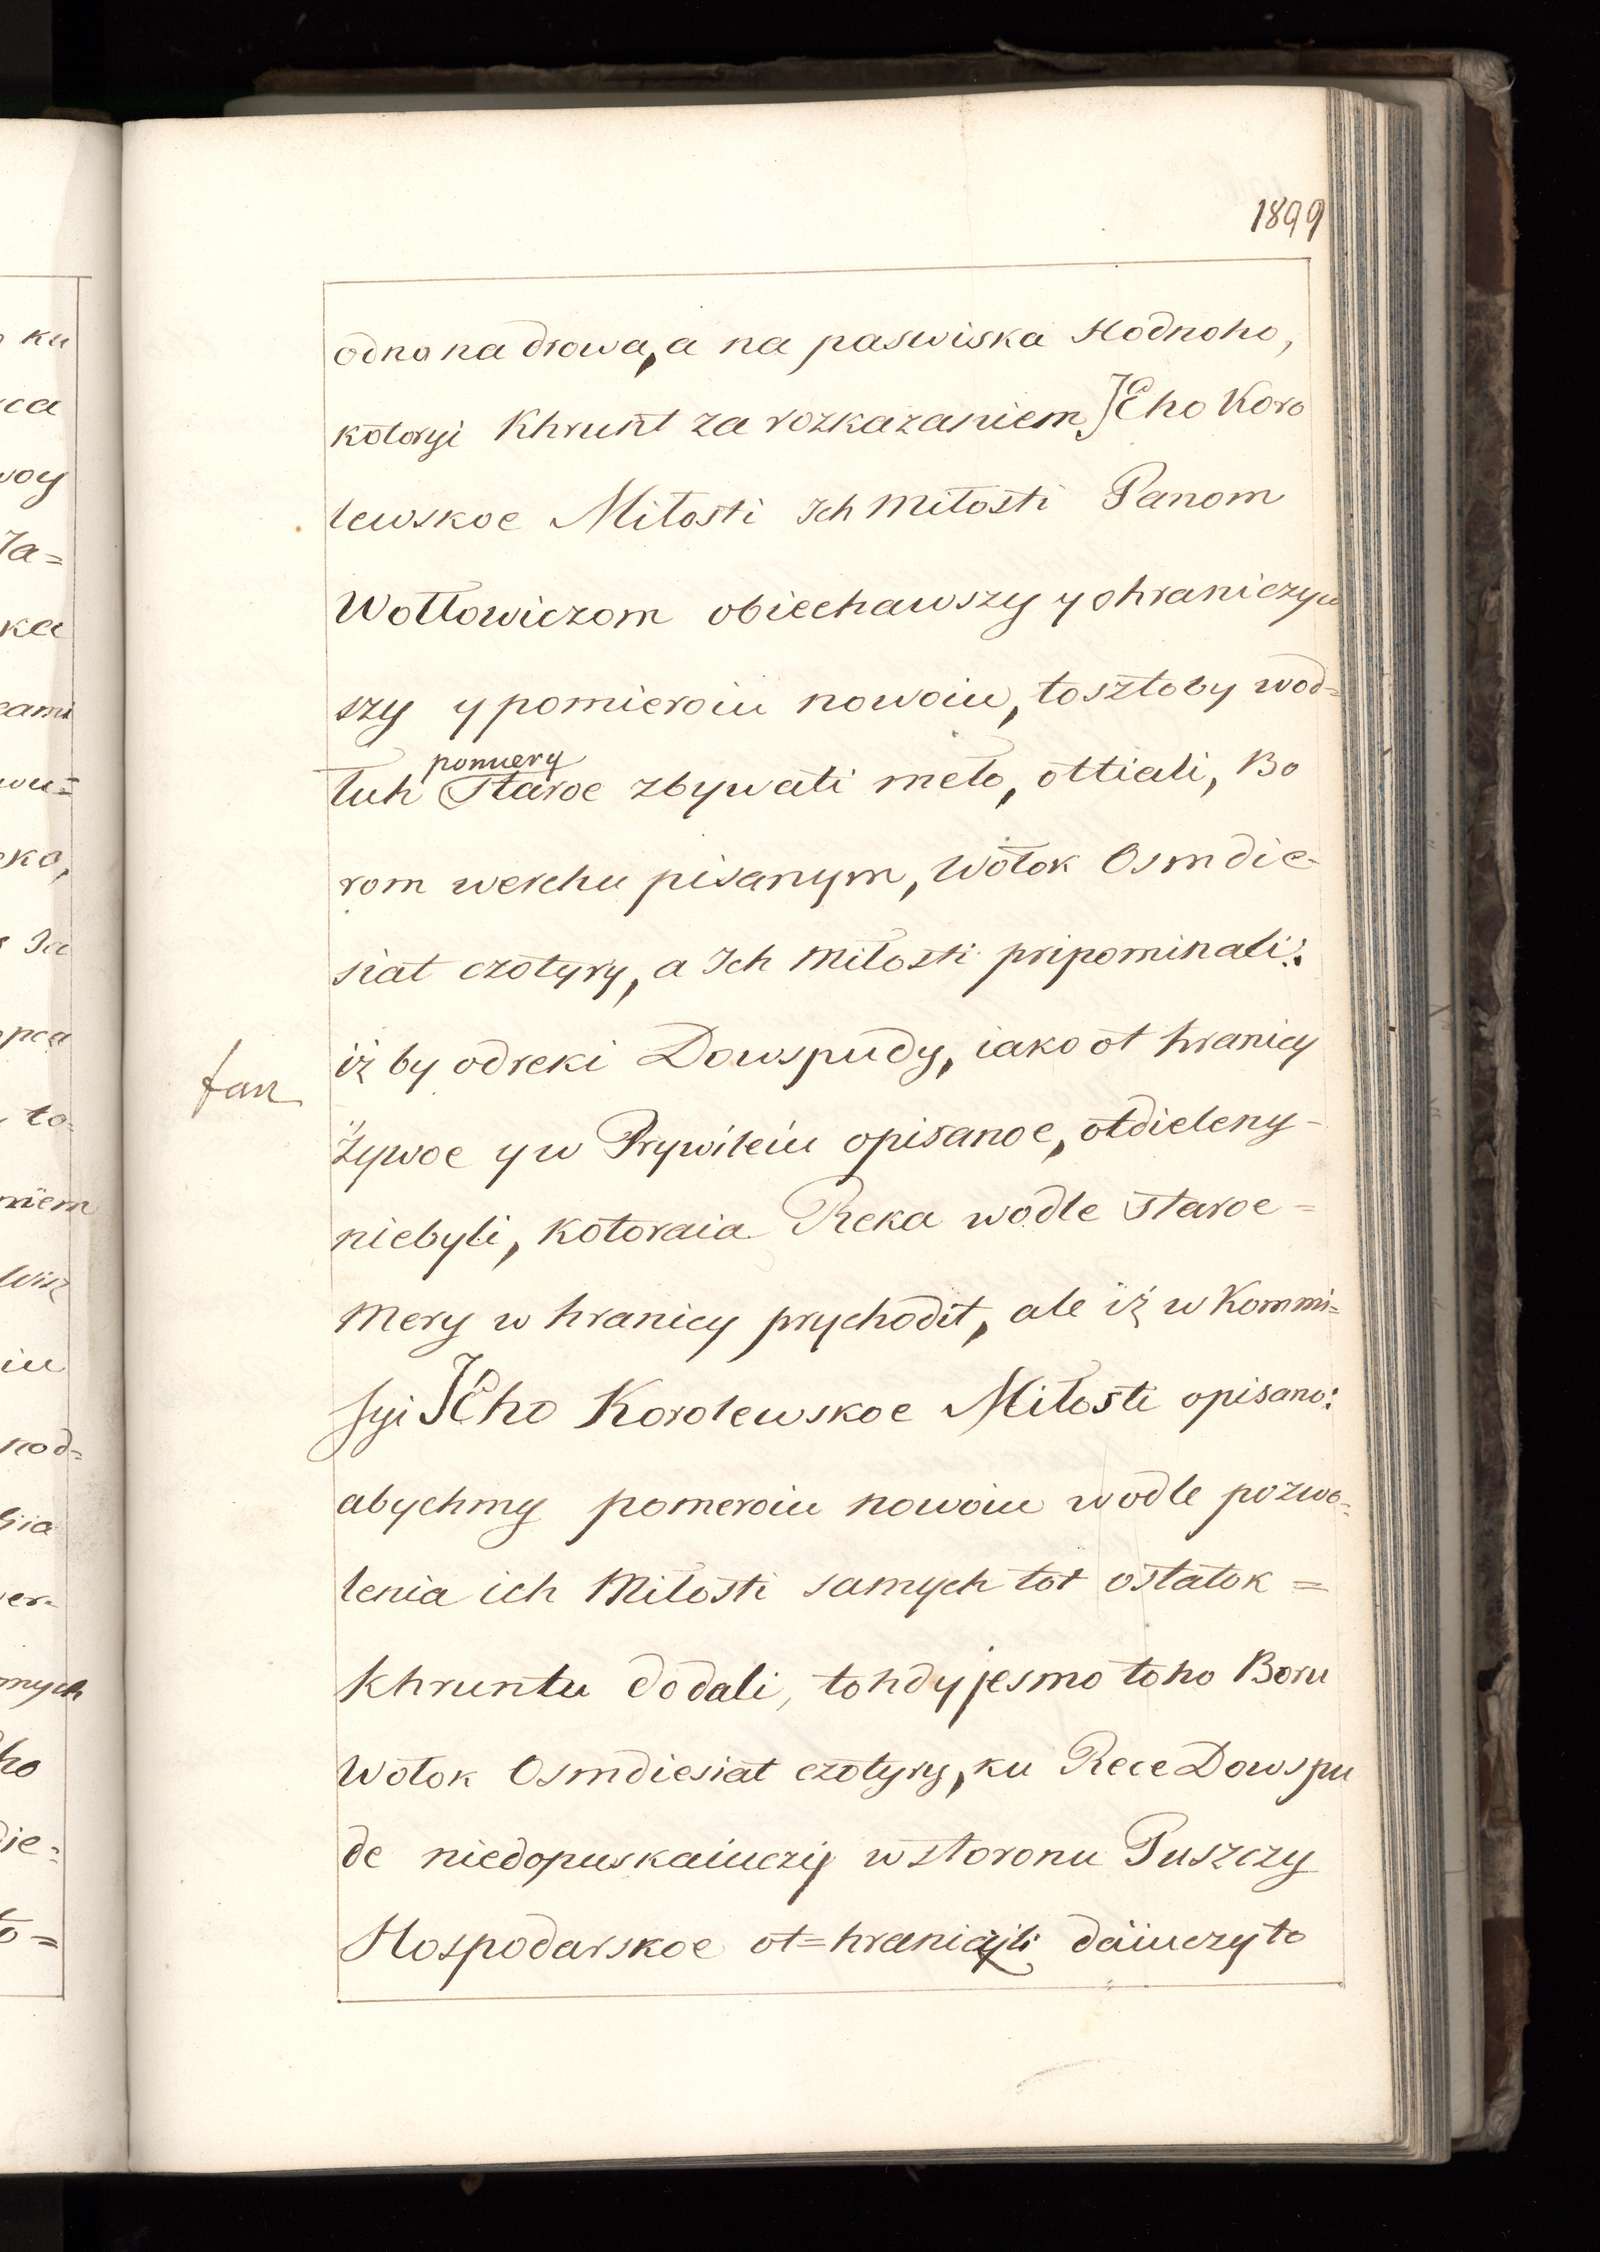 1899
odno na drowa, a na paswiska Hodnoho,
kotoryi Khrunt za rozkazaniem JEho Koro
lewskoe Miłosti Ich Miłosti Panom
Wołłowiczom obiechawszy y ohraniczyw
szy y pomieroiu nowoiu, tosztoby wod=
pomiery
łuh Staroe zbywati meło, ottiali, Bo
rom werchu pisanym, Wołok Osmdie-
siat czotyry, a Ich Miłosti pripominali:
iż by od reki Dowspudy, iako ot hranicy
żywoe y w Prywileiu opisanoe, otdieleny-
niebyli, kotoraia Reka wodle staroe=
Mery w hranicy prychodit, ale iż w Kommi=
syi JEho Korolewskoe Miłosti opisano:
abychmy pomeroiu nowoiu wodle pozwo=
lenia ich Miłosti samych tot ostatok=
Khruntu dodali, tohdy jesmo toho Boru
Wołok Osmdiesiat czotyry, ku Rece Dowspu
de niedopuskaiuczy w storonu Puszczy
Hospodarskoe ot=hraniczyli daiuczy to
ku
ka
to=